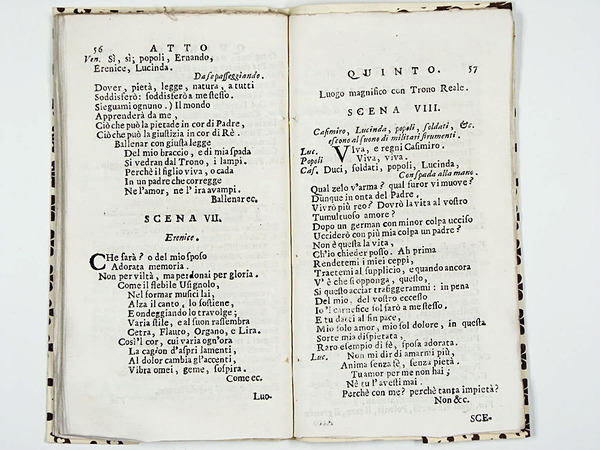 56 ATTO
Ven. Sì, sì; popoli, Ernando,
Erenice, Lucinda.
Da se passeggiando.
Dover, pietà, legge, natura, a tutti
Soddisferò: soddisferò a me stesso.
Sieguami ognuno.) Il mondo
Apprenderà da me,
Ciò che può la pietade in cor di Padre,
Ciò che può la giustizia in cor di Rè.
Ballenar con giusta legge
Del mio braccio, e di mia spada
Si vedran dal Trono, i lampi.
Perchè il figlio viva, o cada
In un padre che corregge
Ne l'amor, ne l'ira avvampi.
Ballenar ec.
SCENA VII.
Erenice.
CHe farà? o del mio sposo
Adorata memoria.
Non per viltà, ma perdonai per gloria.
Come il flebile Usignolo,
Nel formar musici lai,
Alza il canto, lo sostiene,
E ondeggiando lo travolge;
Varia stile, e al suon rassembra
Cetra, Flauto, Organo, e Lira.
Così'l cor, cui varia ogn'ora
La cagion d'aspri lamenti,
Al dolor cambia gl'accenti,
Vibra omei, geme, sospira.
Come ec.
Luo-
QUINTO. 57
Luogo magnifico con Trono Reale.
SCENA VIII.
Casimiro, Lucinda, popoli, soldati, &c.
escono al suono di militari strumenti.
Luc. VIva, e regni Casimiro.
Popoli Viva, viva.
Cas. Duci, soldati, popoli, Lucinda,
Con spada alla mano.
Qual zelo v'arma? qual furor vi muove?
Dunque in onta del Padre
Vivrò più reo? Dovrò la vita al vostro
Tumultuoso amore?
Dopo un german con minor colpa ucciso
Ucciderò con più mia colpa un padre?
Non è questa la vita,
Ch'io chieder posso. Ah prima
Rendetemi i miei ceppi,
Traetemi al supplicio, e quando ancora
V'è che si opponga, quello,
Si questo acciar trafiggerammi: in pena
Del mio, del vostro eccesso
Io'l carnefice sol sarò a me stesso.
E tu datti al fin pace,
Mio solo amor, mio sol dolore, in questa
Sorte mia dispietata,
Raro esempio di fè, sposa adorata.
Luc. Non mi dir di amarmi più,
Anima senza fè, senza pietà.
Tu amor per me non hai;
Nè tu l'avesti mai.
Perchè con me? perchè tanta impietà?
Non &c.
SCE-